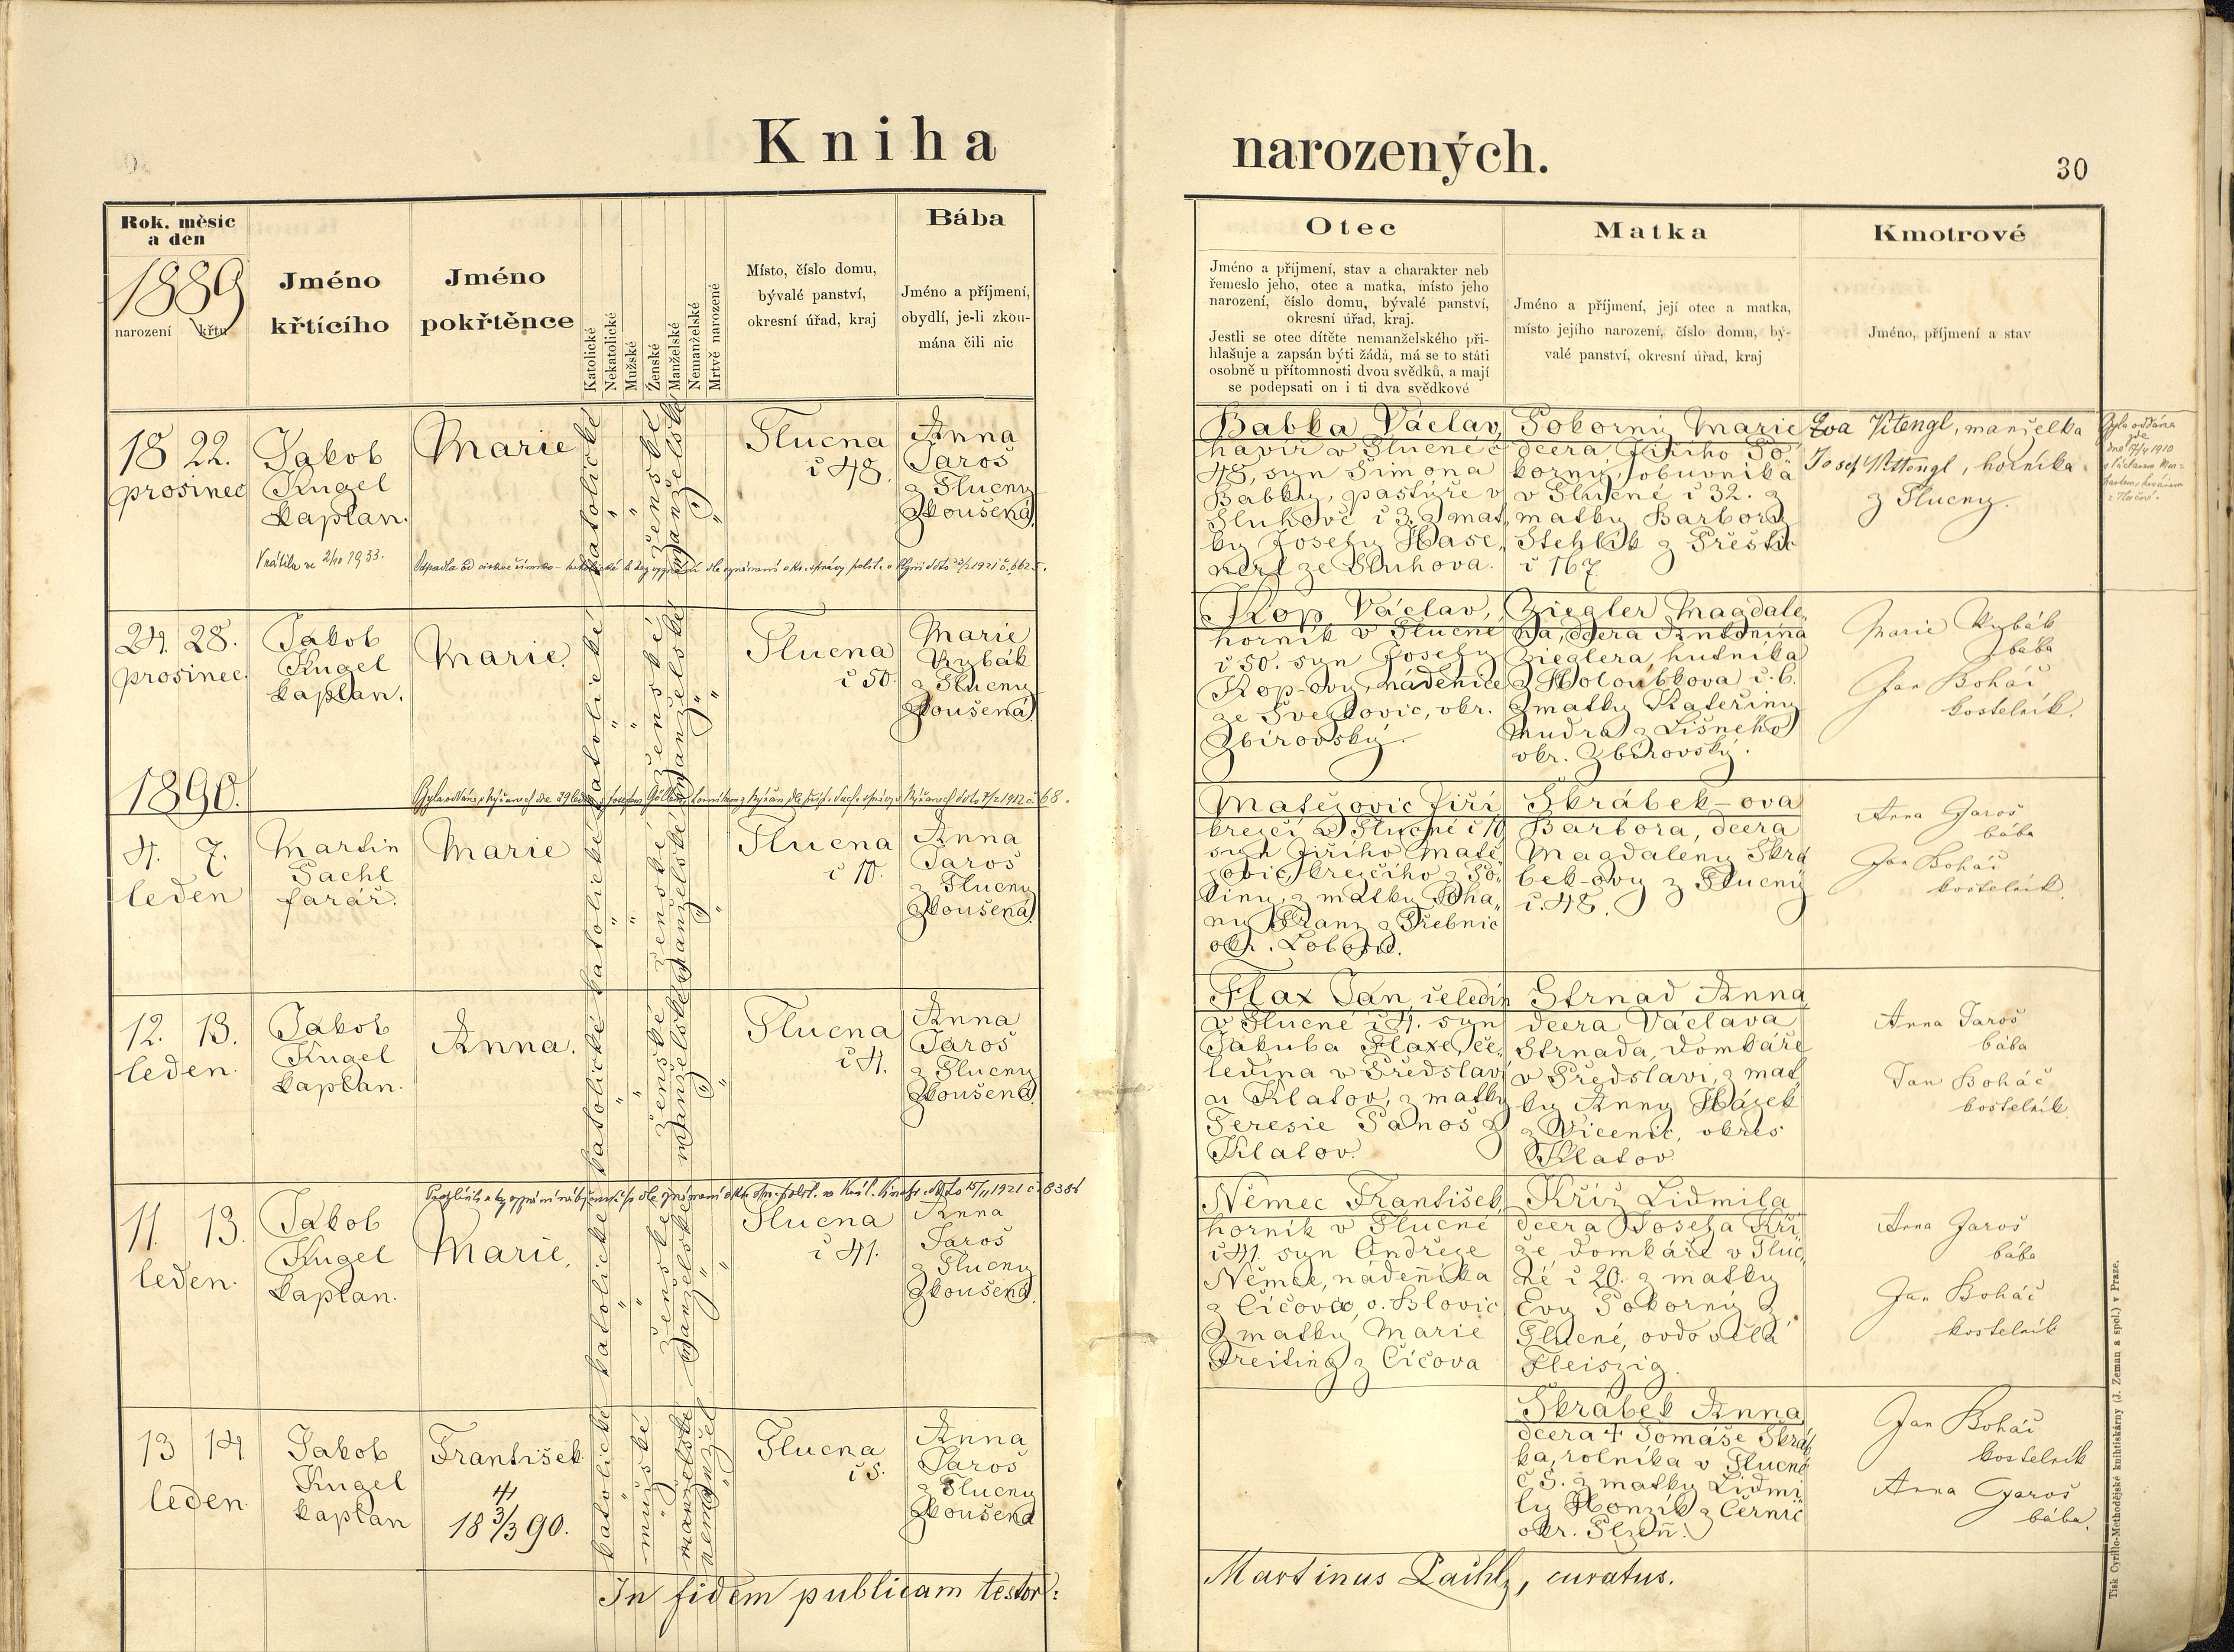 Kniha narozených.
30
Rok, měsíc
a den
1889
narození křtu
Jméno
křtícího
Jméno
pokřtěnce
Katolické
Nekatolické
Mužské
Ženské
Manželské
Nemanželské
Mrtvě narozené
Místo, číslo domu,
bývalé panství,
okresní úřad, kraj
Bába
Jméno a příjmení,
obydlí, je-li zkou-
mána čili nic
Otec
Jméno a příjmení, stav a charakter neb
řemeslo jeho, otec a matka, místo jeho
narození, číslo domu, bývalé panství,
okresní úřad, kraj.
Jestli se otec dítěte nemanželského při-
hlašuje a zapsán býti žádá, má se to státi
osobně u přítomnosti dvou svědků, a mají
se podepsati on i ti dva svědkové
Matka
Jméno a příjmení, její otec a matka,
místo jejího narození, číslo domu, bý-
valé panství, okresní úřad, kraj
Kmotrové
Jméno, příjmení a stav
18 22.
prosinec
Jakob
Kugel
kaplan.
Marie
katolické
ženské
manželské
Tlucna
č 48.
Anna
Jaroš
z Tlucny
zkoušená.
Babka Václav,
havíř v Tlucné č
48, syn Šimona
Babky, pastýře v
Sluhově č 3. z mat
ky Josefy
ze Sluhova.
Pokorný Marie
dcera Jiřího Po
korný, obuvníka
v Tlucné č 32. z
matky Barbory
Stehlík z Přeštic
č 167
Eva Vitengl, manželka
Josef Vittengl, horníka
z Tlucny.
Byla oddána
zde
dne 17/4 1910
Vrátila se 2/10 1933.
Odpadla od církve římsko-katolické k bez vyznání dle oznámení okr. správy polit. v Plzni dto 1921 č.
24. 28.
prosinec.
Jakob
Kugel
kaplan.
Marie.
katolické
ženské
manželské
Tlucna
č 50.
Marie
Rybák
z Tlucny
zkoušená.
Kop Václav,
horník v Tlucné
č 50. syn Josefy
Kop-ovy, nádenice
ze Švejkovic, okr.
Zbirovský.
Ziegler Magdale,
na, dcera Antonína
Zieglera, hutníka
z Holoubkova č. 6.
z matky Kateřiny
Mudra z Lišného
okr. Zbirovský.
Marie Rybák
bába
Jan Boháč
kostelník.
1890.
4. 7.
leden
Martin
Pachl
farář.
Marie
katolické
ženské
manželské
Tlucna
č 10.
Anna
Jaroš
z Tlucny
zkoušená.
Matějovic Jiří
krejčí v Tlucné č 10
syn Jiřího Matě,
jovic, krejčího z
z matky Joha,
ny Franz z Třebnic
okr.
Skrábek-ova
Barbora, dcera
Magdaleny Skrá
bek-ovy z Tlucny
č. 48.
Anna Jaroš
bába
Jan Boháč
kostelník.
12. 13.
leden.
Jakob
Kugel
kaplan.
Anna.
katolické
ženské
manželské
Tlucna
č 4.
Anna
Jaroš
z Tlucny
zkoušená.
Flax Jan, čeledín
v Tlucné č 4. syn
Jakuba Flaxe, če,
ledína v Předslavi
u Klatov, z matky
Teresie Panoš z
Klatov.
Strnad Anna
dcera Václava
Strnada, domkáře
v Předslavi, z mat,
ky Anny Hájek
z Vicenic, okres
Klatov
Anna Jaroš
bába
Jan Boháč
kostelník.
11. 13.
leden.
Jakob
Kugel
kaplan.
Marie,
katolické
ženské
manželské
Tlucna
č 41.
Anna
Jaroš
z Tlucny
zkoušená.
Němec František,
horník v Tlucné
č 41. syn Ondřeje
Němce, nádeníka
z Čičova, o. Blovic
z matky Marie
Treiting z Čičova
Kříž Lidmila
dcera Josefa Kří,
že domkáře v Tluc,
né č 20. z matky
Evy Pokorný z
Tlucné, ovdovělá
Fleiszig.
Anna Jaroš
bába
Jan Boháč
kostelník
13 14
leden
Jakob
Kugel
kaplan
František
18 3/3 90.
katolické
mužské
manželské
nemanžel
Tlucna
č 5.
Anna
Jaroš
z Tlucny
zkoušená
Skrábek Anna,
dcera † Tomáše Skráb
ka, rolníka v Tlucné
č 5. z matky Lidmi
ly Honzík z Černic
okr. Plzeň.
Jan Boháč
kostelník
Anna Jaroš
bába.
In fidem publicam testor:
Martinus Pachl, curatus.
Tisk Cyrillo-Methodějské knihtiskárny (J. Zeman a spol.) v Praze.